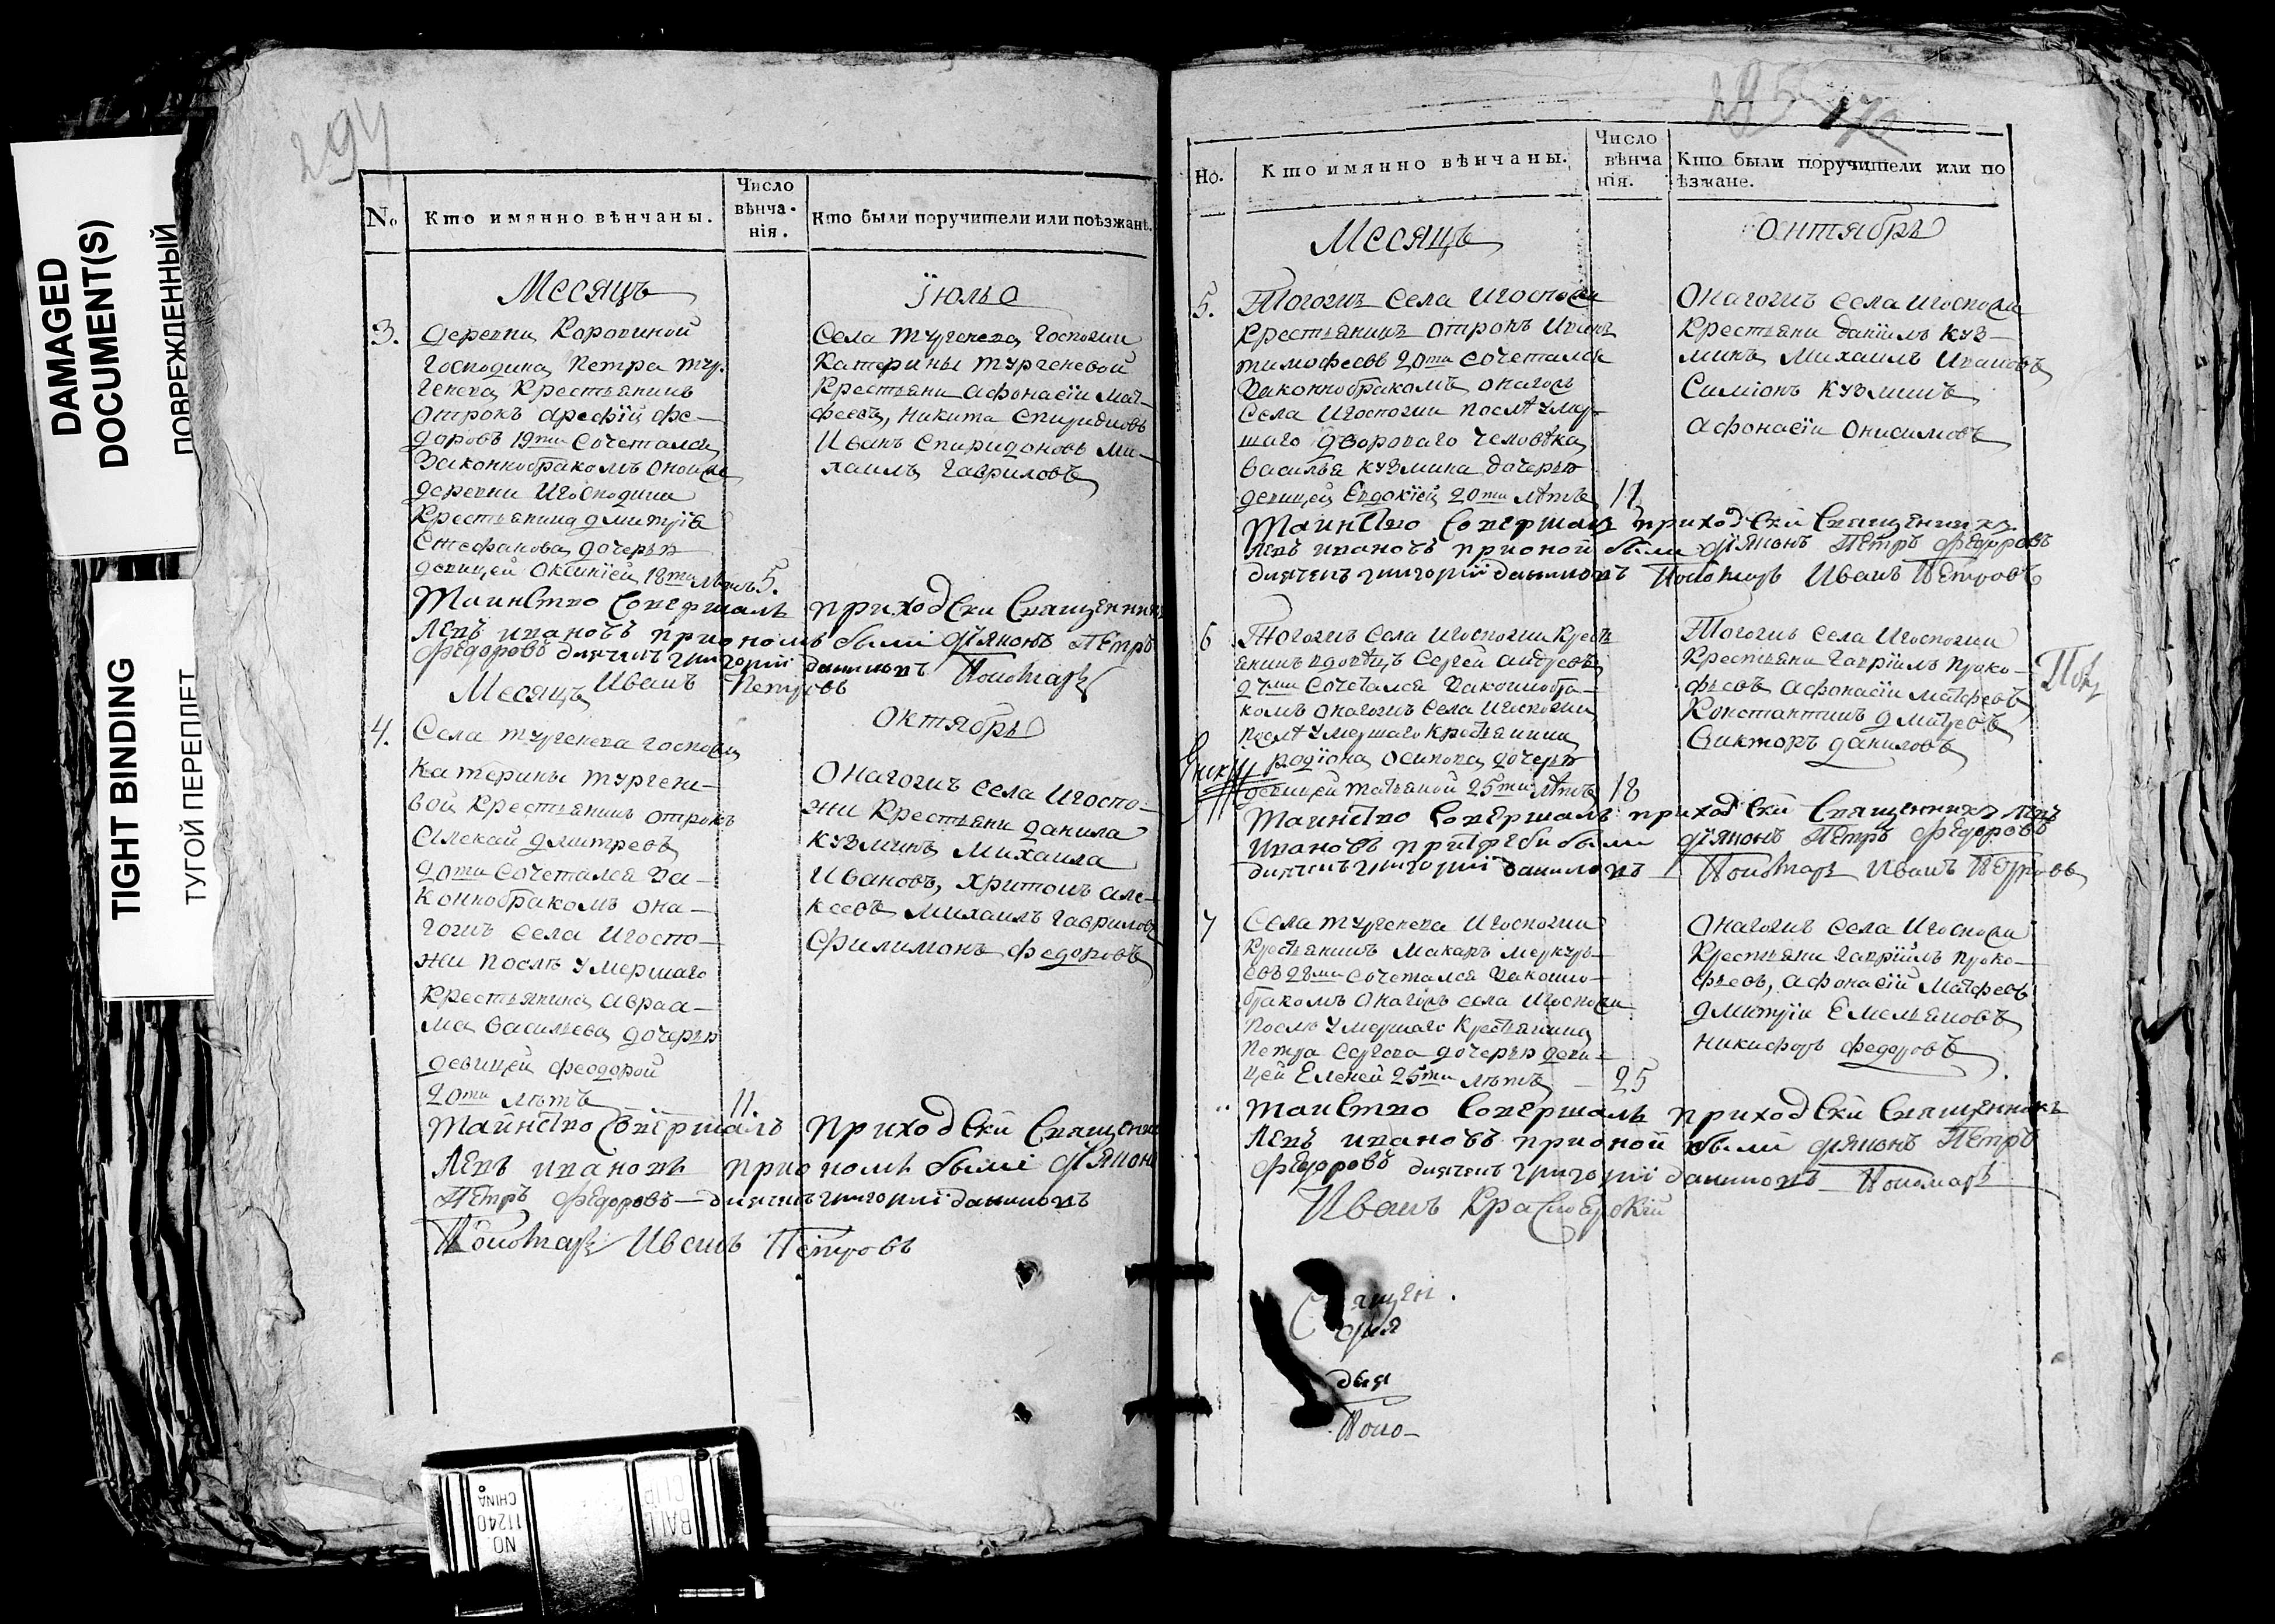 294
DAMAGED
DOCUMENT(S)
ПОВРЕЖДЕННЫЙ
TIGHT BINDING
ТУГОЙ ПЕРЕПЛЕТ
№ Кто имянно вѣнчаны. Число вѣнча- нія. Кто были поручители или поѣзжанѣ.
Месяцъ Їюль
3. деревни Коровиной
Господина Петра Тур-
генева Крестьянинъ
отрокъ Арефїй Фе-
доровъ 19ти сочетался
Законнобракомъ оной же
деревни Игосподина
Крестьянина дмитрїя
Стефанова дочерью
девицей Оксинїей 18ти лѣтъ 5.
Села Тургенева Госпожи
Катерины Тургеневой
Крестьяни Афонасїи Мат-
феевъ, Никита Спиридоновъ
Иванъ Спиридоновъ Ми-
хаилъ Гавриловъ
Таинство Совершалъ приходски Священникъ
Левъ Ивановъ приономъ были діяконъ Петръ
Федоровъ дьячекъ григорїй даниловъ Пономарь
Иванъ Петровъ
Месяцъ Октябрь
4. Села Тургенева Госпожи
Катерины Тургене-
вой Крестьянинъ отрокъ
Алексай дмитревъ
20ти сочетался За-
коннобракомъ она-
гожъ села Игоспо-
жи послѣ умершаго
Крестьянина Авраа-
ма Васильева дочерью
девицей феодорой
20ти лѣтъ 11.
Онагожъ села Игоспо-
жи Крестьяни данила
Кузминъ Михаила
Ивановъ, Хритонъ Але-
ксевъ Михаилъ Гавриловъ
Филимонъ Федоровъ
Таинство Совершалъ приходскй Священни
Левъ Ивановъ приономъ были діяконъ
Петръ Федоровъ — дьячекъ григорїй даниловъ
Пономарь Иванъ Петровъ
NO.
11240
CHINA
BALL
CLIP
285 170
Но. Кто имянно вѣнчаны. Число вѣнча нія. Кто были поручители или по ѣзжане.
Месяцъ Октябрь
5. Тогожъ села Игоспожи
Крестьянинъ отрокъ Иванъ
Тимофеевъ 20ти сочетался
Законнобракомъ онагожъ
села Игоспожи послѣ умер-
шаго дворового человѣка
Василья Кузмина дочерью
девицей Евдокїей 20ти лѣтъ 11
Онагожъ села Игоспожи
Крестьяни данїилъ Куз-
минъ Михаилъ Ивановъ
Симїонъ Кузминъ
Афонасїи Онисимовъ
Таинство Совершалъ приходскй Священникъ
Левъ Ивановъ прионой были діяконъ Петръ Федоровъ
дьячекъ григорїй даниловъ Пономарь Иванъ Петровъ
6 Тогожъ села Игоспожи Кресть
янинъ вдовецъ Сергей Андреевъ
27ми сочетался Законнобра-
комъ онагожъ села Игоспожи
послѣ умершаго Крестьянина
родїона Осипова дочерью
девицей Татьяной 25ти лѣтъ 18
Тогожъ села Игоспожи
Крестьяни Гаврїилъ Проко-
фьевъ Афонасїи Матфеевъ
Константинъ дмитревъ
Викторъ даниловъ
Таинство Совершалъ приходскй Священникъ Левъ
Ивановъ при требѣ были діяконъ Петръ Федоровъ
дьячекъ григорїй даниловъ Пономарь Иванъ Петровъ
7 Села Тургенева Игоспожи
Крестьянинъ Макаръ Меркурь-
евъ 28ми сочетался Законно-
бракомъ онагожъ села Игоспожи
послѣ умершаго Крестьянина
Петра Сергева дочерью деви-
цей Еленей 25ти лѣтъ — 25
Онагожъ села Игоспожи
Крестьяни Гаврїилъ Проко-
фьевъ, Афонасїй Матфеевъ
дмитрїи Емельяновъ
Никифоръ федоровъ
Таинство Совершалъ приходскй Священникъ
Левъ Ивановъ прионой были діяконъ Петръ
Федоровъ дьячекъ григорїй даниловъ Пономарь
Иванъ Красноярскїй
Священ.
дия
дья
Поно-